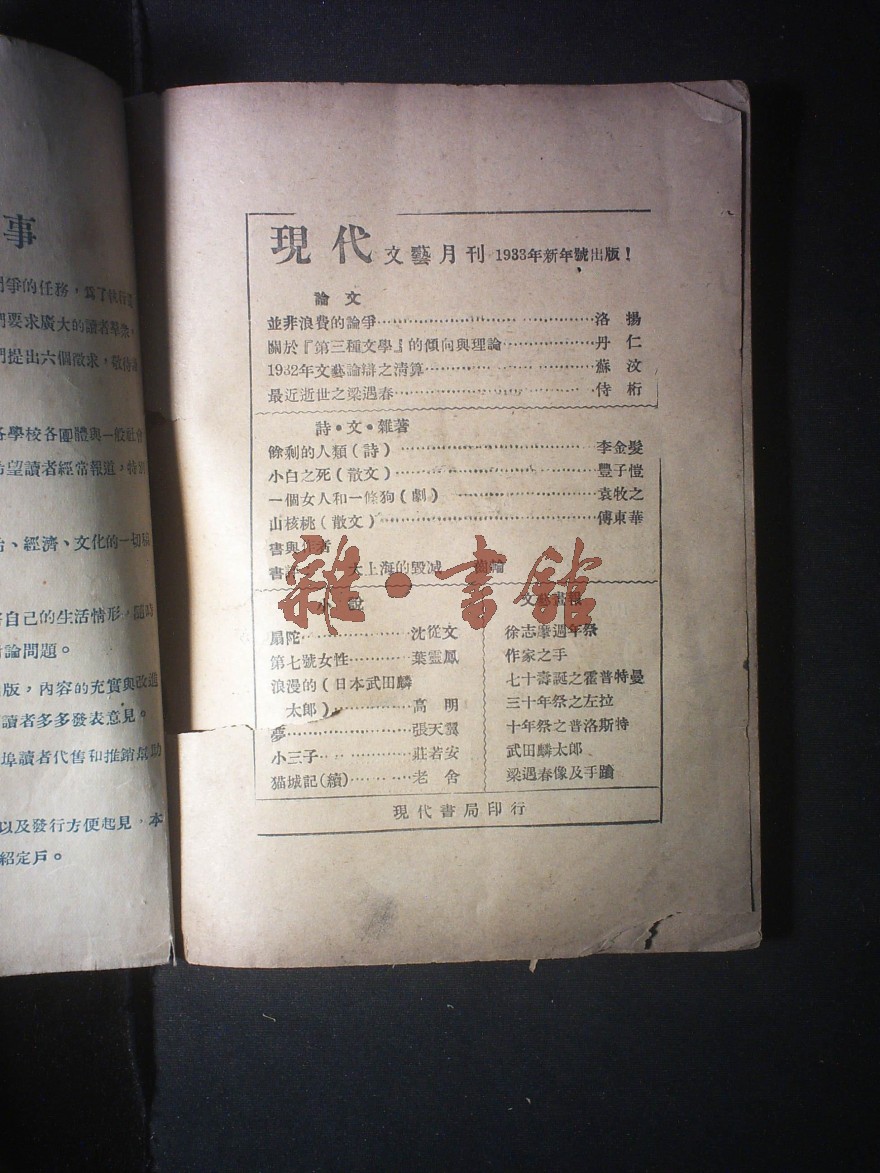 事
鬥爭的任務，爲了執行
們要求廣大的讀者羣衆，
們提出六個徵求，敬待
各學校各團體與一般社會
希望讀者經常報道，特別
、經濟、文化的一切
自己的生活情形，隨時
討論問題。
出版，內容的充實與改進
讀者多多發表意見。
埠讀者代售和推銷
以及發行方便起見，本
紹定戶。
現代 文藝月刊 1933年新年號出版！
論文
並非浪費的論爭 洛揚
關於『第三種文學』的傾向與理論 丹仁
1932年文藝論辯之清算 蘇汶
最近逝世之梁遇春 侍桁
詩·文·雜著
餘剩的人類(詩) 李金髮
小白之死(散文) 豐子愷
一個女人和一條狗(劇) 袁牧之
山核桃(散文) 傅東華
書與作者
書評 大上海的毀滅 齒輪
小說
扇陀 沈從文
第七號女性 葉靈鳳
浪漫的(日本武田麟
太郎) 高明
夢 張天翼
小三子 莊若安
猫城記(續) 老舍
文藝畫報
徐志摩週年祭
作家之手
七十壽誕之霍普特曼
三十年祭之左拉
十年祭之普洛斯特
武田麟太郎
梁遇春像及手蹟
現代書局印行
雜·書館